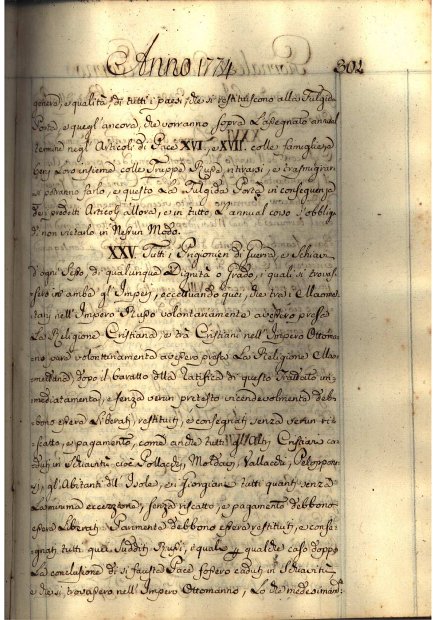 Anno 1774 302
genera, e qualità, di tutti i paesi, che si restituiscono alla Fulgida
Porta, e quegl'ancora, che vorranno sopra l'assegnato annual
termine negl'Articoli di Pace XVI, e XVII colle famiglie, e
beni loro insieme colle Truppe Russe ritirarsi, e trasmigrar
si potranno farlo, e questo la Fulgida Porta in conseguenza
de predetti Articoli allora, e in tutto l'annual corso s'obbli
di non vietarlo in Nessun Modo.
XXV. Tutti i Prigionieri di Guerra, e Schiavi
d'ogni Sesso, di qualunque Dignità o Grado, i quali si trovas
sero in amba gl'Imperj, eccettuando quei, che tra i Maomet
tani nell'Impero Russo volontariamente avessero preso
La Religione Cristiana, e trà Cristiani nell'Impero Ottoma
no pure volontariamente avessero preso La Religione Mao
mettana, dopo il baratto della Ratifica di questo Trattato im
mediatamente, e senza verun pretesto vicendevolmente deb
bono essere Liberati, restituiti, e consegnati senza verun ris
catto, e pagamento, come anche tutti gl'Altri Cristiani ca
duti in Schiavitù cioè Pollacchi, Moldavi, Vallacchi, Peloponn
gl'Abitanti dell'Isole, e i Giorgiani tutti quanti senza
La minima eccezzione, senza riscatto, e pagamento debbono
essere Liberati. Parimente debbono essere restituiti, e conse
gnati tutti quei Sudditi Russi, i quali qualche caso doppo
La conclusione di sì fausta Pace fossero caduti in Schiavitù
e che si trovassero nell'Impero Ottomanno, Lo che medesimam